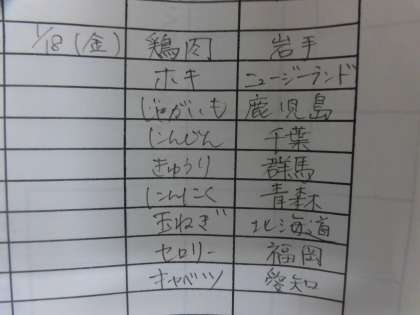 1/18(金) 鶏肉 岩手
ホキ ニュージーランド
じゃがいも 鹿児島
にんじん 千葉
きゅうり 群馬
にんにく 青森
玉ねぎ 北海道
セロリー 福岡
キャベツ 愛知